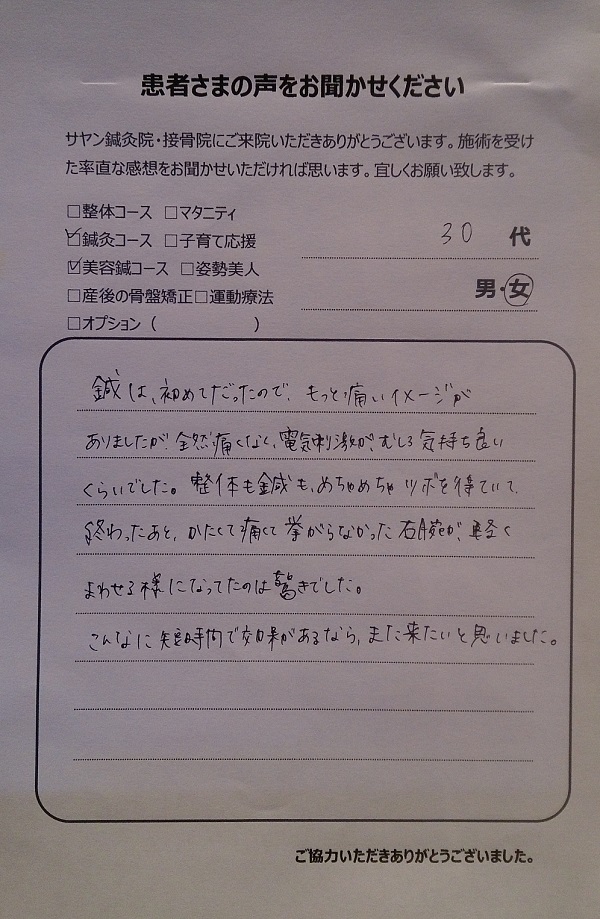 患者さまの声をお聞かせください
サヤン鍼灸院・接骨院にご来院いただきありがとうございます。施術を受け
た率直な感想をお聞かせいただければ思います。宜しくお願い致します。
□整体コース □マタニティ
☑鍼灸コース □子育て応援
☑美容鍼コース □姿勢美人
□産後の骨盤矯正□運動療法
□オプション（ ）
30 代
男・女
鍼は、初めてだったので、もっと痛いイメージが
ありましたが、全然痛くなく、電気刺激が、むしろ気持ち良い
くらいでした。整体も鍼も、めちゃめちゃツボを得ていて、
終わったあと、かたくて痛くて挙がらなかった右腕が、軽く
まわせる様になってたのは驚きでした。
こんなに短時間で効果があるなら、また来たいと思いました。
ご協力いただきありがとうございました。